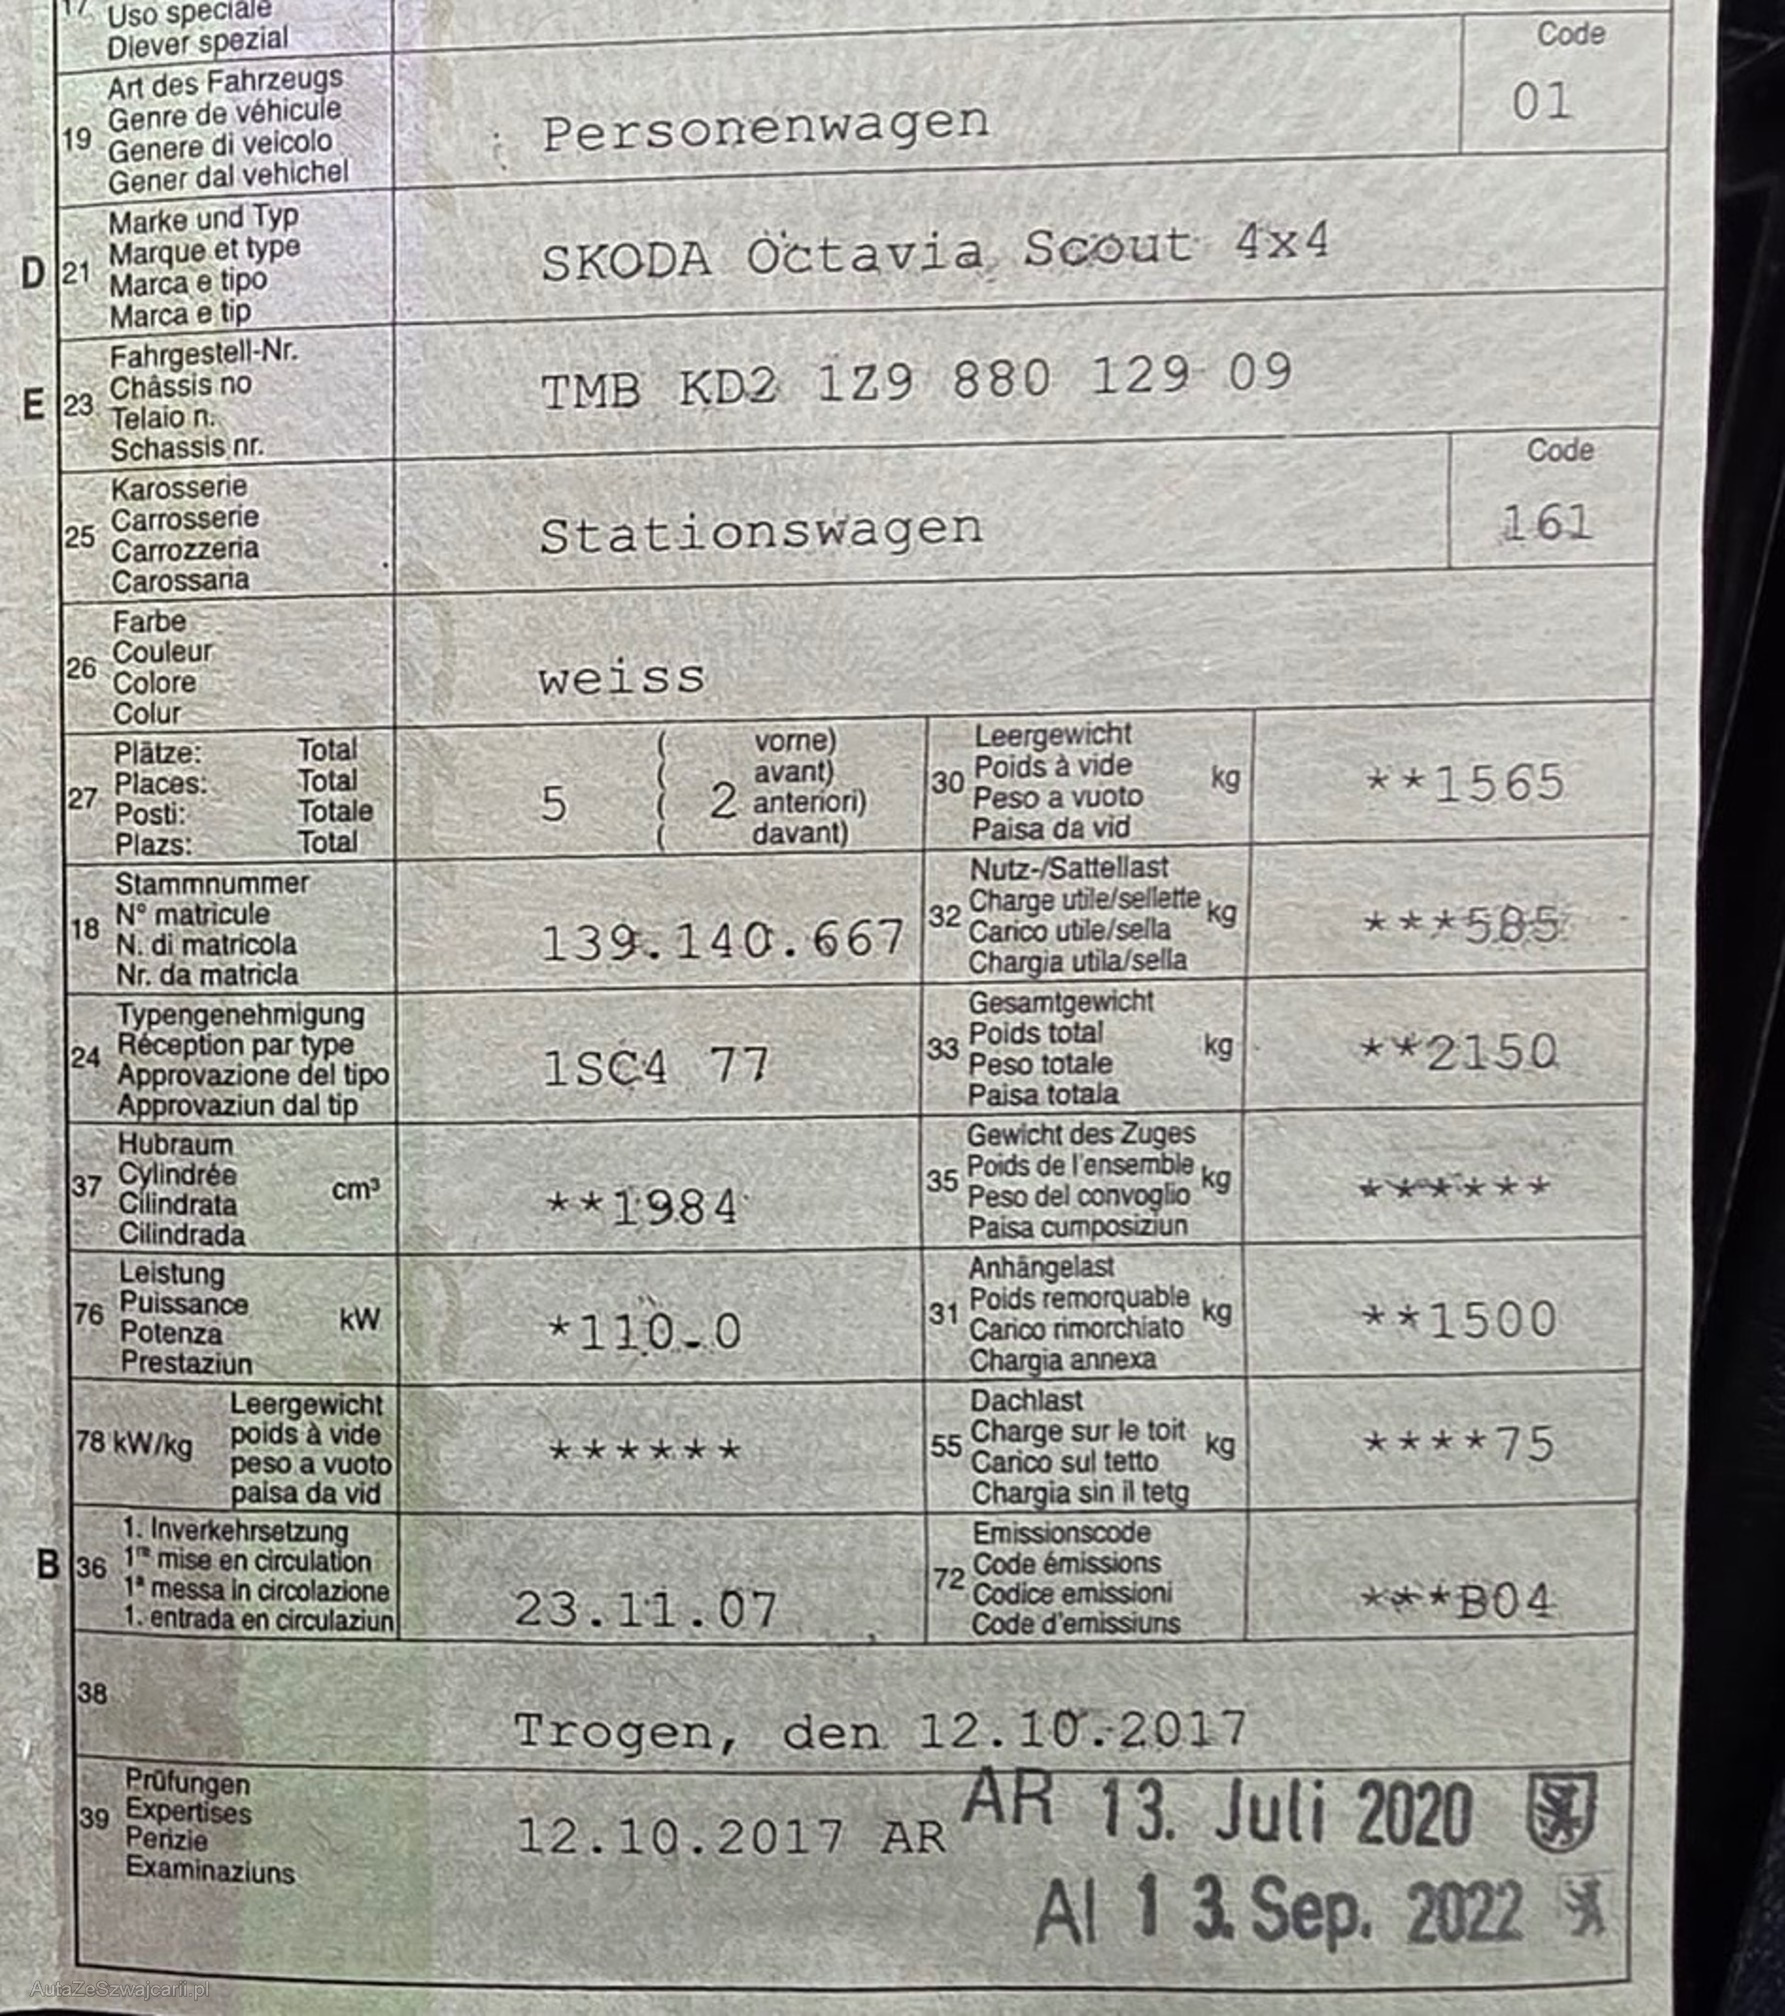 17 Uso speciale
Diever spezial
Code
19 Art des Fahrzeugs
Genre de véhicule
Genere di veicolo
Gener dal vehichel
Personenwagen
01
D 21 Marke und Typ
Marque et type
Marca e tipo
Marca e tip
SKODA Octavia Scout 4x4
E 23 Fahrgestell-Nr.
Châssis no
Telaio n.
Schassis nr.
TMB KD2 1Z9 880 129 09
Code
25 Karosserie
Carrosserie
Carrozzeria
Carossaria
Stationswagen
161
26 Farbe
Couleur
Colore
Colur
weiss
27 Plätze: Total
Places: Total
Posti: Totale
Plazs: Total
5 ( 2 vorne)
( avant)
( anteriori)
( davant)
30 Leergewicht
Poids à vide kg
Peso a vuoto
Paisa da vid
**1565
18 Stammnummer
N° matricule
N. di matricola
Nr. da matricla
139.140.667
32 Nutz-/Sattellast
Charge utile/sellette kg
Carico utile/sella
Chargia utila/sella
***585
24 Typengenehmigung
Réception par type
Approvazione del tipo
Approvaziun dal tip
1SC4 77
33 Gesamtgewicht
Poids total kg
Peso totale
Paisa totala
**2150
37 Hubraum
Cylindrée cm³
Cilindrata
Cilindrada
**1984
35 Gewicht des Zuges
Poids de l'ensemble kg
Peso del convoglio
Paisa cumposiziun
******
76 Leistung
Puissance kW
Potenza
Prestaziun
*110.0
31 Anhängelast
Poids remorquable kg
Carico rimorchiato
Chargia annexa
**1500
78 kW/kg Leergewicht
poids à vide
peso a vuoto
paisa da vid
******
55 Dachlast
Charge sur le toit kg
Carico sul tetto
Chargia sin il tetg
****75
B 36 1. Inverkehrsetzung
1re mise en circulation
1a messa in circolazione
1. entrada en circulaziun
23.11.07
72 Emissionscode
Code émissions
Codice emissioni
Code d'emissiuns
***B04
38
Trogen, den 12.10.2017
39 Prüfungen
Expertises
Perizie
Examinaziuns
12.10.2017 AR
AR 13. Juli 2020
AI 13. Sep. 2022
AutaZeSzwajcarii.pl